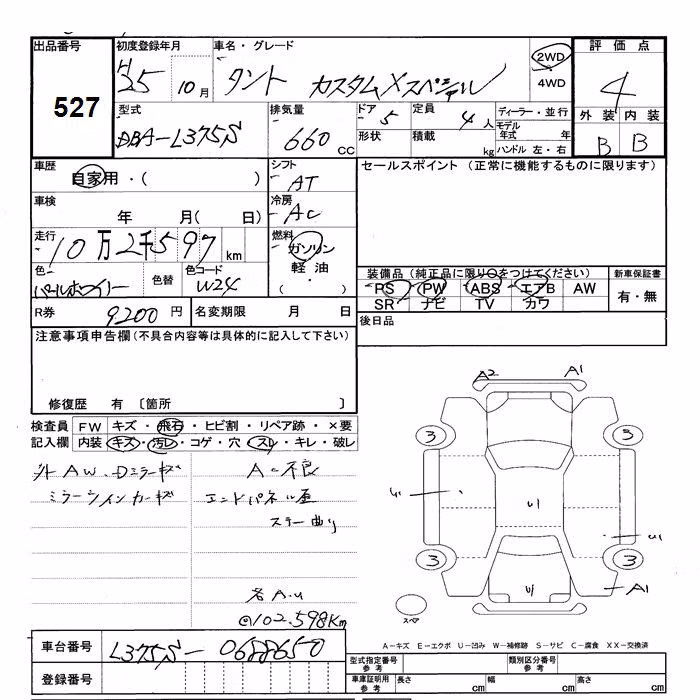 出品番号 初度登録年月 車名・グレード 評価点
527 H25 10月 タント カスタムXスペシャル 2WD 4WD 4
型式 排気量 ドア 5 定員 4人 ディーラー・並行 外装 内装
DBA-L375S 660cc 形状 積載 kg モデル年式 年 ハンドル 左・右 B B
車歴 自家用・( ) シフト AT セールスポイント (正常に機能するものに限ります)
車検 年 月( 日) 冷房 AC
走行 10万2千597km 燃料 ガソリン
軽油・( )
色 パールホワイト 色替 色コード W24 装備品(純正品に限り○をつけてください) 新車保証書
PS PW ABS エアB AW 有・無
R券 9,200円 名変期限 月 日 SR ナビ TV カワ
注意事項申告欄(不具合内容等は具体的に記入して下さい) 後日品
修復歴 有 〔箇所 〕
検査員 FW キズ・飛石・ヒビ割・リペア跡・×要
記入欄 内装 キズ・汚レ・コゲ・穴・スレ・キレ・破レ
外AW、Dミラーキズ
ミラーウインカーキズ
エンドパネル
ステー曲り
@102,598Km
A2 A1
3 3
U1 U1
3 3
U1 A1
スペア
A-キズ E-エクボ U-凹み W-補修跡 S-サビ C-腐食 XX-交換済
車台番号 L375S-0688650
登録番号
型式指定番号 参考 類別区分番号 参考
車庫証明用 参考 長さ cm 幅 cm 高さ cm